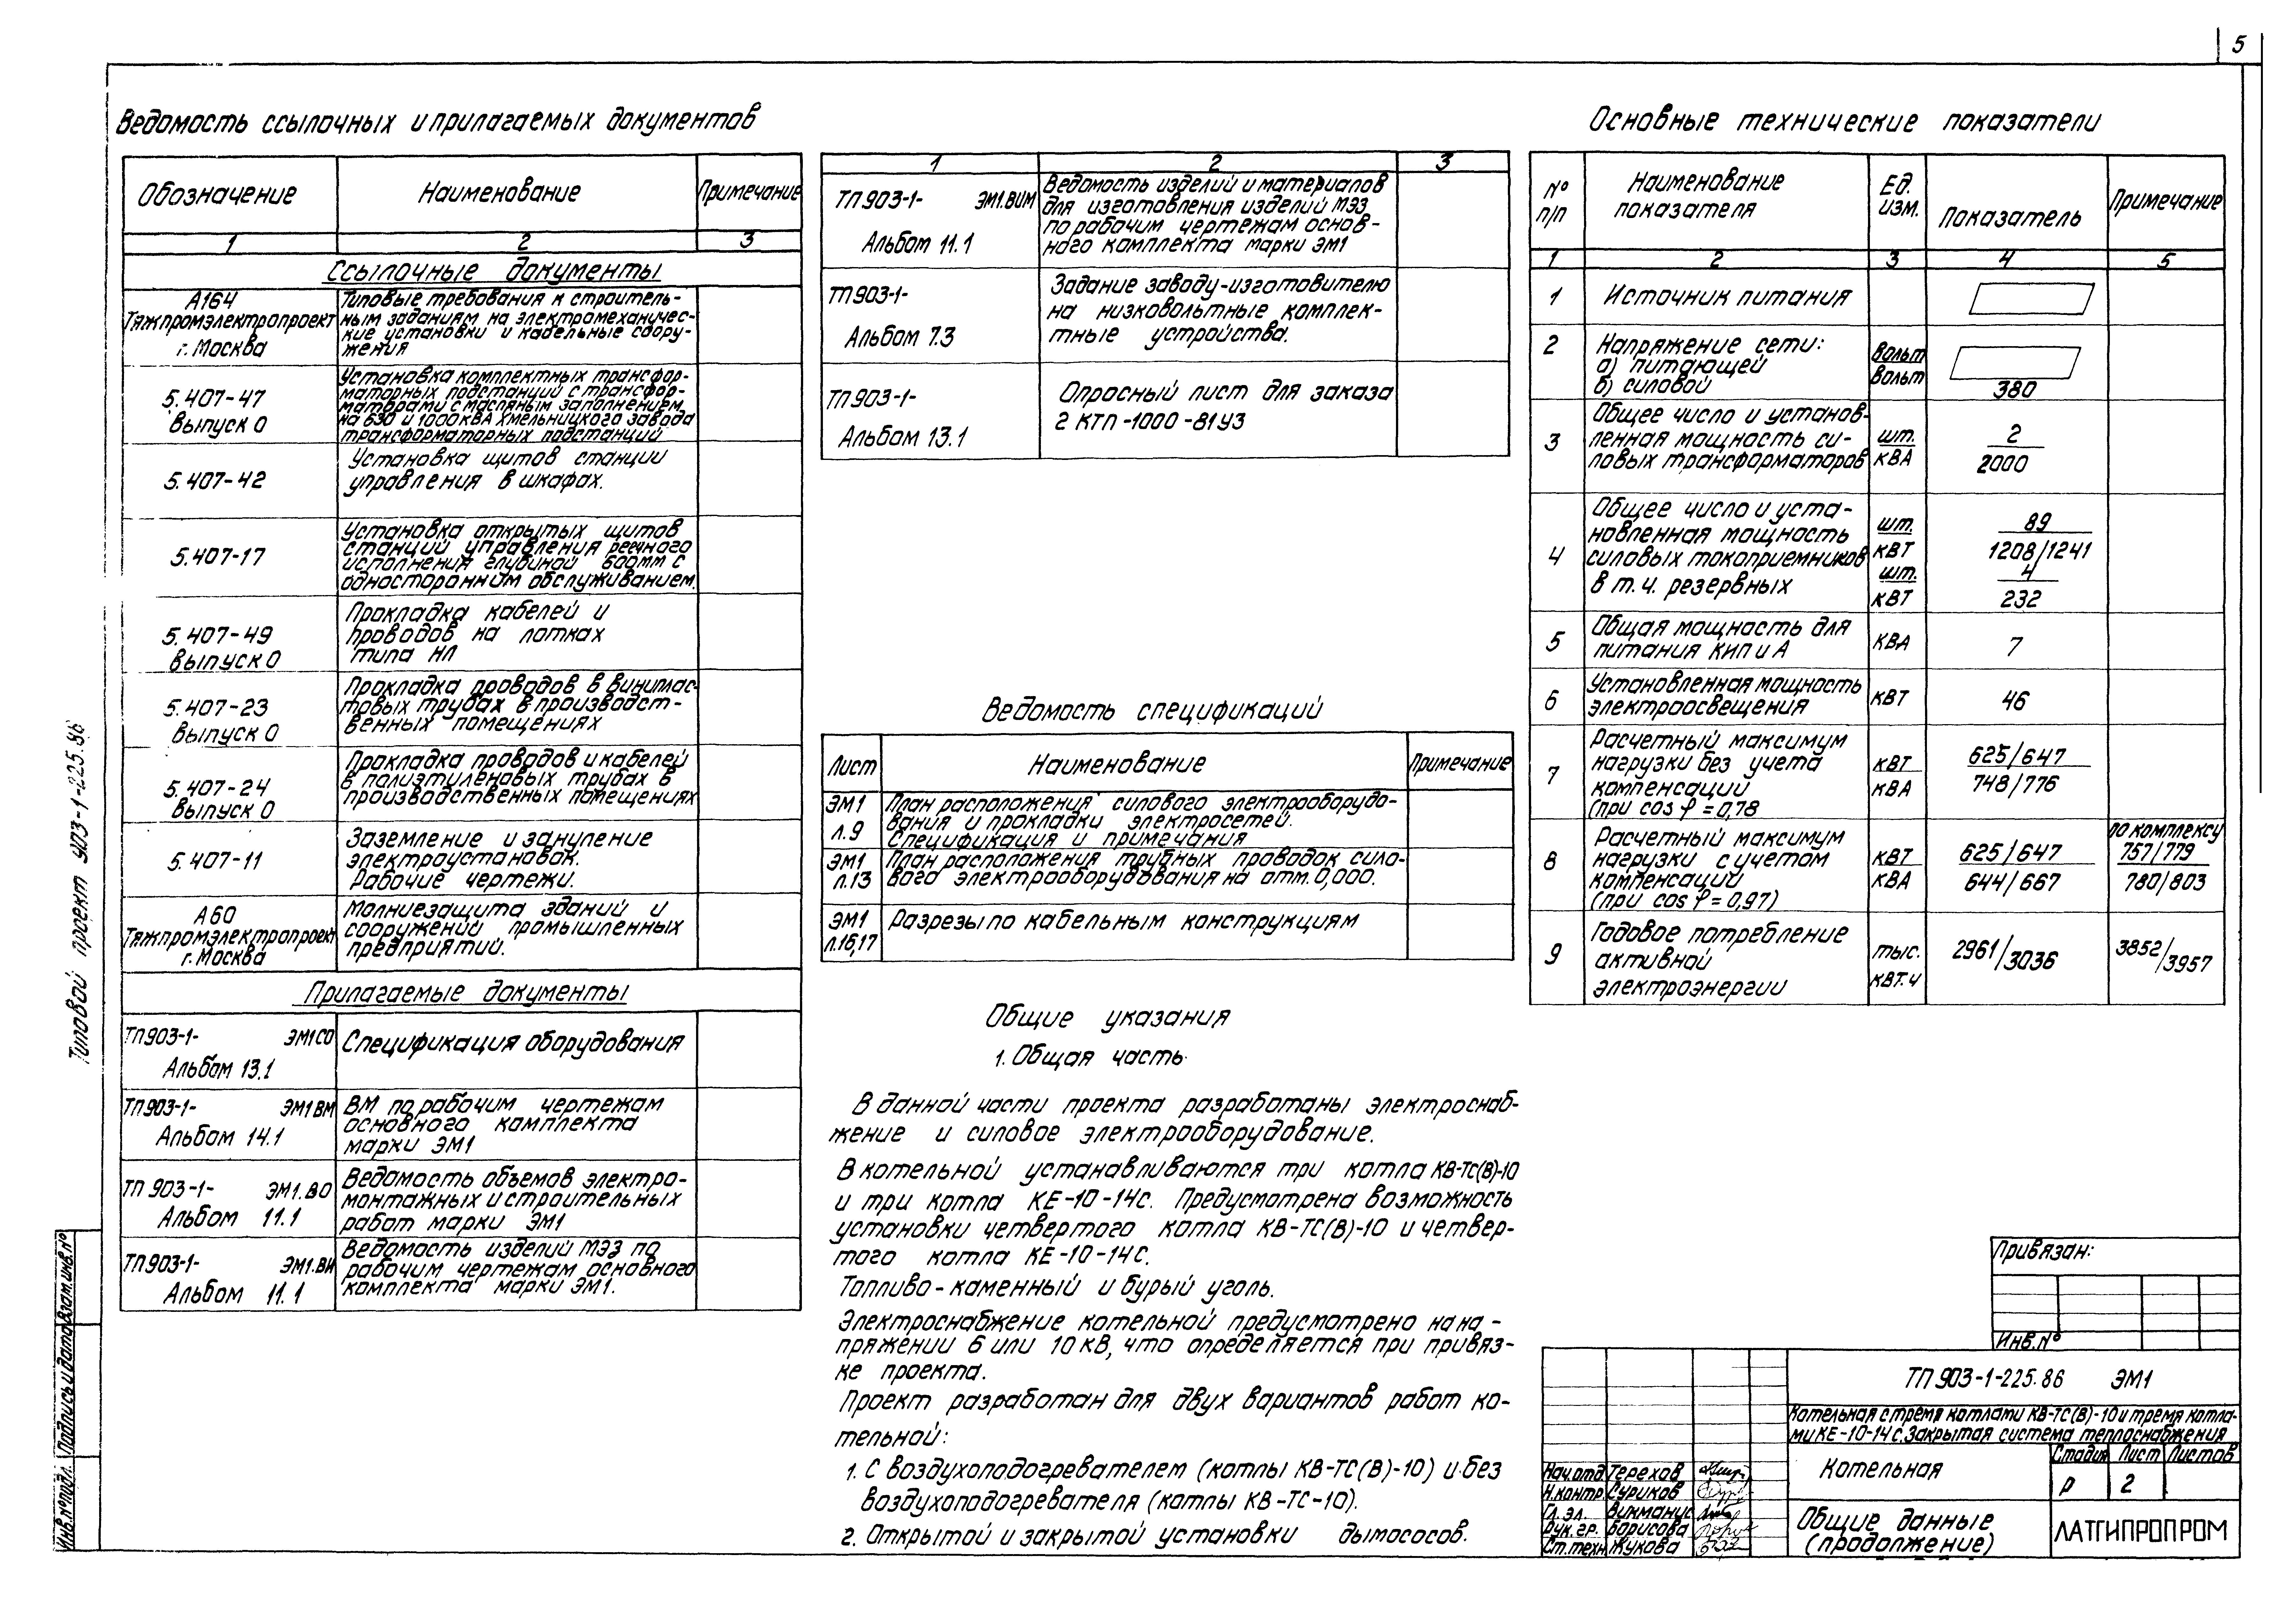 5
Ведомость ссылочных и прилагаемых документов
Обозначение Наименование Примечание
1 2 3
Ссылочные документы
А164
Тяжпромэлектропроект
г. Москва
Типовые требования к строитель-
ным заданиям на электромеханичес-
кие установки и кабельные соору-
жения
5.407-47
Выпуск 0
Установка комплектных трансфор-
маторных подстанций с трансфор-
маторами с масляным заполнением
на 630 и 1000кВА Хмельницкого завода
трансформаторных подстанций
5.407-42
Установка щитов станции
управления в шкафах.
5.407-17
Установка открытых щитов
станций управления реечного
исполнения глубиной 600мм с
односторонним обслуживанием.
5.407-49
Выпуск 0
Прокладка кабелей и
проводов на лотках
типа НЛ
5.407-23
Выпуск 0
Прокладка проводов в виниплас-
товых трубах в производст-
венных помещениях
5.407-24
Выпуск 0
Прокладка проводов и кабелей
в полиэтиленовых трубах в
производственных помещениях
5.407-11
Заземление и зануление
электроустановок.
Рабочие чертежи.
А60
Тяжпромэлектропроект
г. Москва
Молниезащита зданий и
сооружений промышленных
предприятий.
Прилагаемые документы
ТП903-1- ЭМ1СО
Альбом 13.1
Спецификация оборудования
ТП903-1- ЭМ1ВМ
Альбом 14.1
ВМ по рабочим чертежам
основного комплекта
марки ЭМ1
ТП 903-1- ЭМ1.ВО
Альбом 11.1
Ведомость объемов электро-
монтажных и строительных
работ марки ЭМ1
ТП903-1- ЭМ1.ВИ
Альбом 11.1
Ведомость изделий МЭЗ по
рабочим чертежам основного
комплекта марки ЭМ1.
1 2 3
ТП903-1- ЭМ1.ВИМ
Альбом 11.1
Ведомость изделий и материалов
для изготовления изделий МЭЗ
по рабочим чертежам основ-
ного комплекта марки ЭМ1
ТП903-1-
Альбом 7.3
Задание заводу-изготовителю
на низковольтные комплек-
тные устройства.
ТП903-1-
Альбом 13.1
Опросный лист для заказа
2 КТП-1000-81У3
Ведомость спецификаций
Лист Наименование Примечание
ЭМ1
л.9
План расположения силового электрооборудо-
вания и прокладки электросетей.
Спецификация и примечания
ЭМ1
л.13
План расположения трубных проводок сило-
вого электрооборудования на отм. 0,000.
ЭМ1
л.16,17
Разрезы по кабельным конструкциям
Общие указания
1. Общая часть
В данной части проекта разработаны электроснаб-
жение и силовое электрооборудование.
В котельной устанавливаются три котла КВ-ТС(В)-10
и три котла КЕ-10-14с. Предусмотрена возможность
установки четвертого котла КВ-ТС(В)-10 и четвер-
того котла КЕ-10-14с.
Топливо - каменный и бурый уголь.
Электроснабжение котельной предусмотрено на на-
пряжении 6 или 10 кВ, что определяется при привяз-
ке проекта.
Проект разработан для двух вариантов работ ко-
тельной:
1. С воздухоподогревателем (котлы КВ-ТС(В)-10) и без
воздухоподогревателя (котлы КВ-ТС-10).
2. Открытой и закрытой установки дымососов.
Основные технические показатели
№ п/п Наименование показателя Ед. изм. Показатель Примечание
1 2 3 4 5
1 Источник питания
2 Напряжение сети:
а) питающей Вольт
б) силовой Вольт 380
3 Общее число и установ-
ленная мощность си- шт. 2
ловых трансформаторов КВА 2000
4 Общее число и уста-
новленная мощность шт. 89
силовых токоприемников КВТ 1208/1241
в т.ч. резервных шт. 4
КВТ 232
5 Общая мощность для
питания КИП и А КВА 7
6 Установленная мощность
электроосвещения КВТ 46
7 Расчетный максимум
нагрузки без учета КВТ 625/647
компенсации КВА 748/776
(при cos φ = 0,78
8 Расчетный максимум по комплексу
нагрузки с учетом КВТ 625/647 757/779
компенсации КВА 644/667 780/803
(при cos φ = 0,97)
9 Годовое потребление
активной тыс. 2961/3036 3852/3957
электроэнергии КВТ.Ч
Привязан:
Инв.№
ТП 903-1-225.86 ЭМ1
Котельная с тремя котлами КВ-ТС(В)-10 и тремя котла-
ми КЕ-10-14с. Закрытая система теплоснабжения
Котельная
Стадия Лист Листов
Р 2
Общие данные
(продолжение)
ЛАТГИПРОПРОМ
Нач.отд. Терехов
Н.контр. Суриков
Гл. эл. Викманис
Рук. гр. Борисова
Ст.техн. Жукова
Типовой проект 903-1-225.86
Инв.№подл. Подпись и дата Взам.инв.№